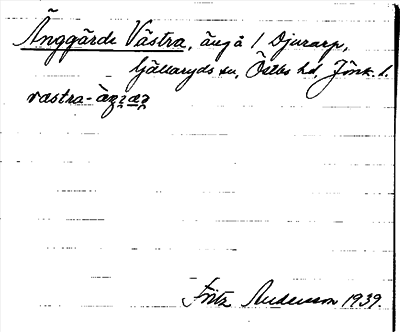 Änggärde Västra, äng å / Djurarp,
Gällaryds sn, Östbo hd, Jönk. l.
Fritz Andersson 1939.